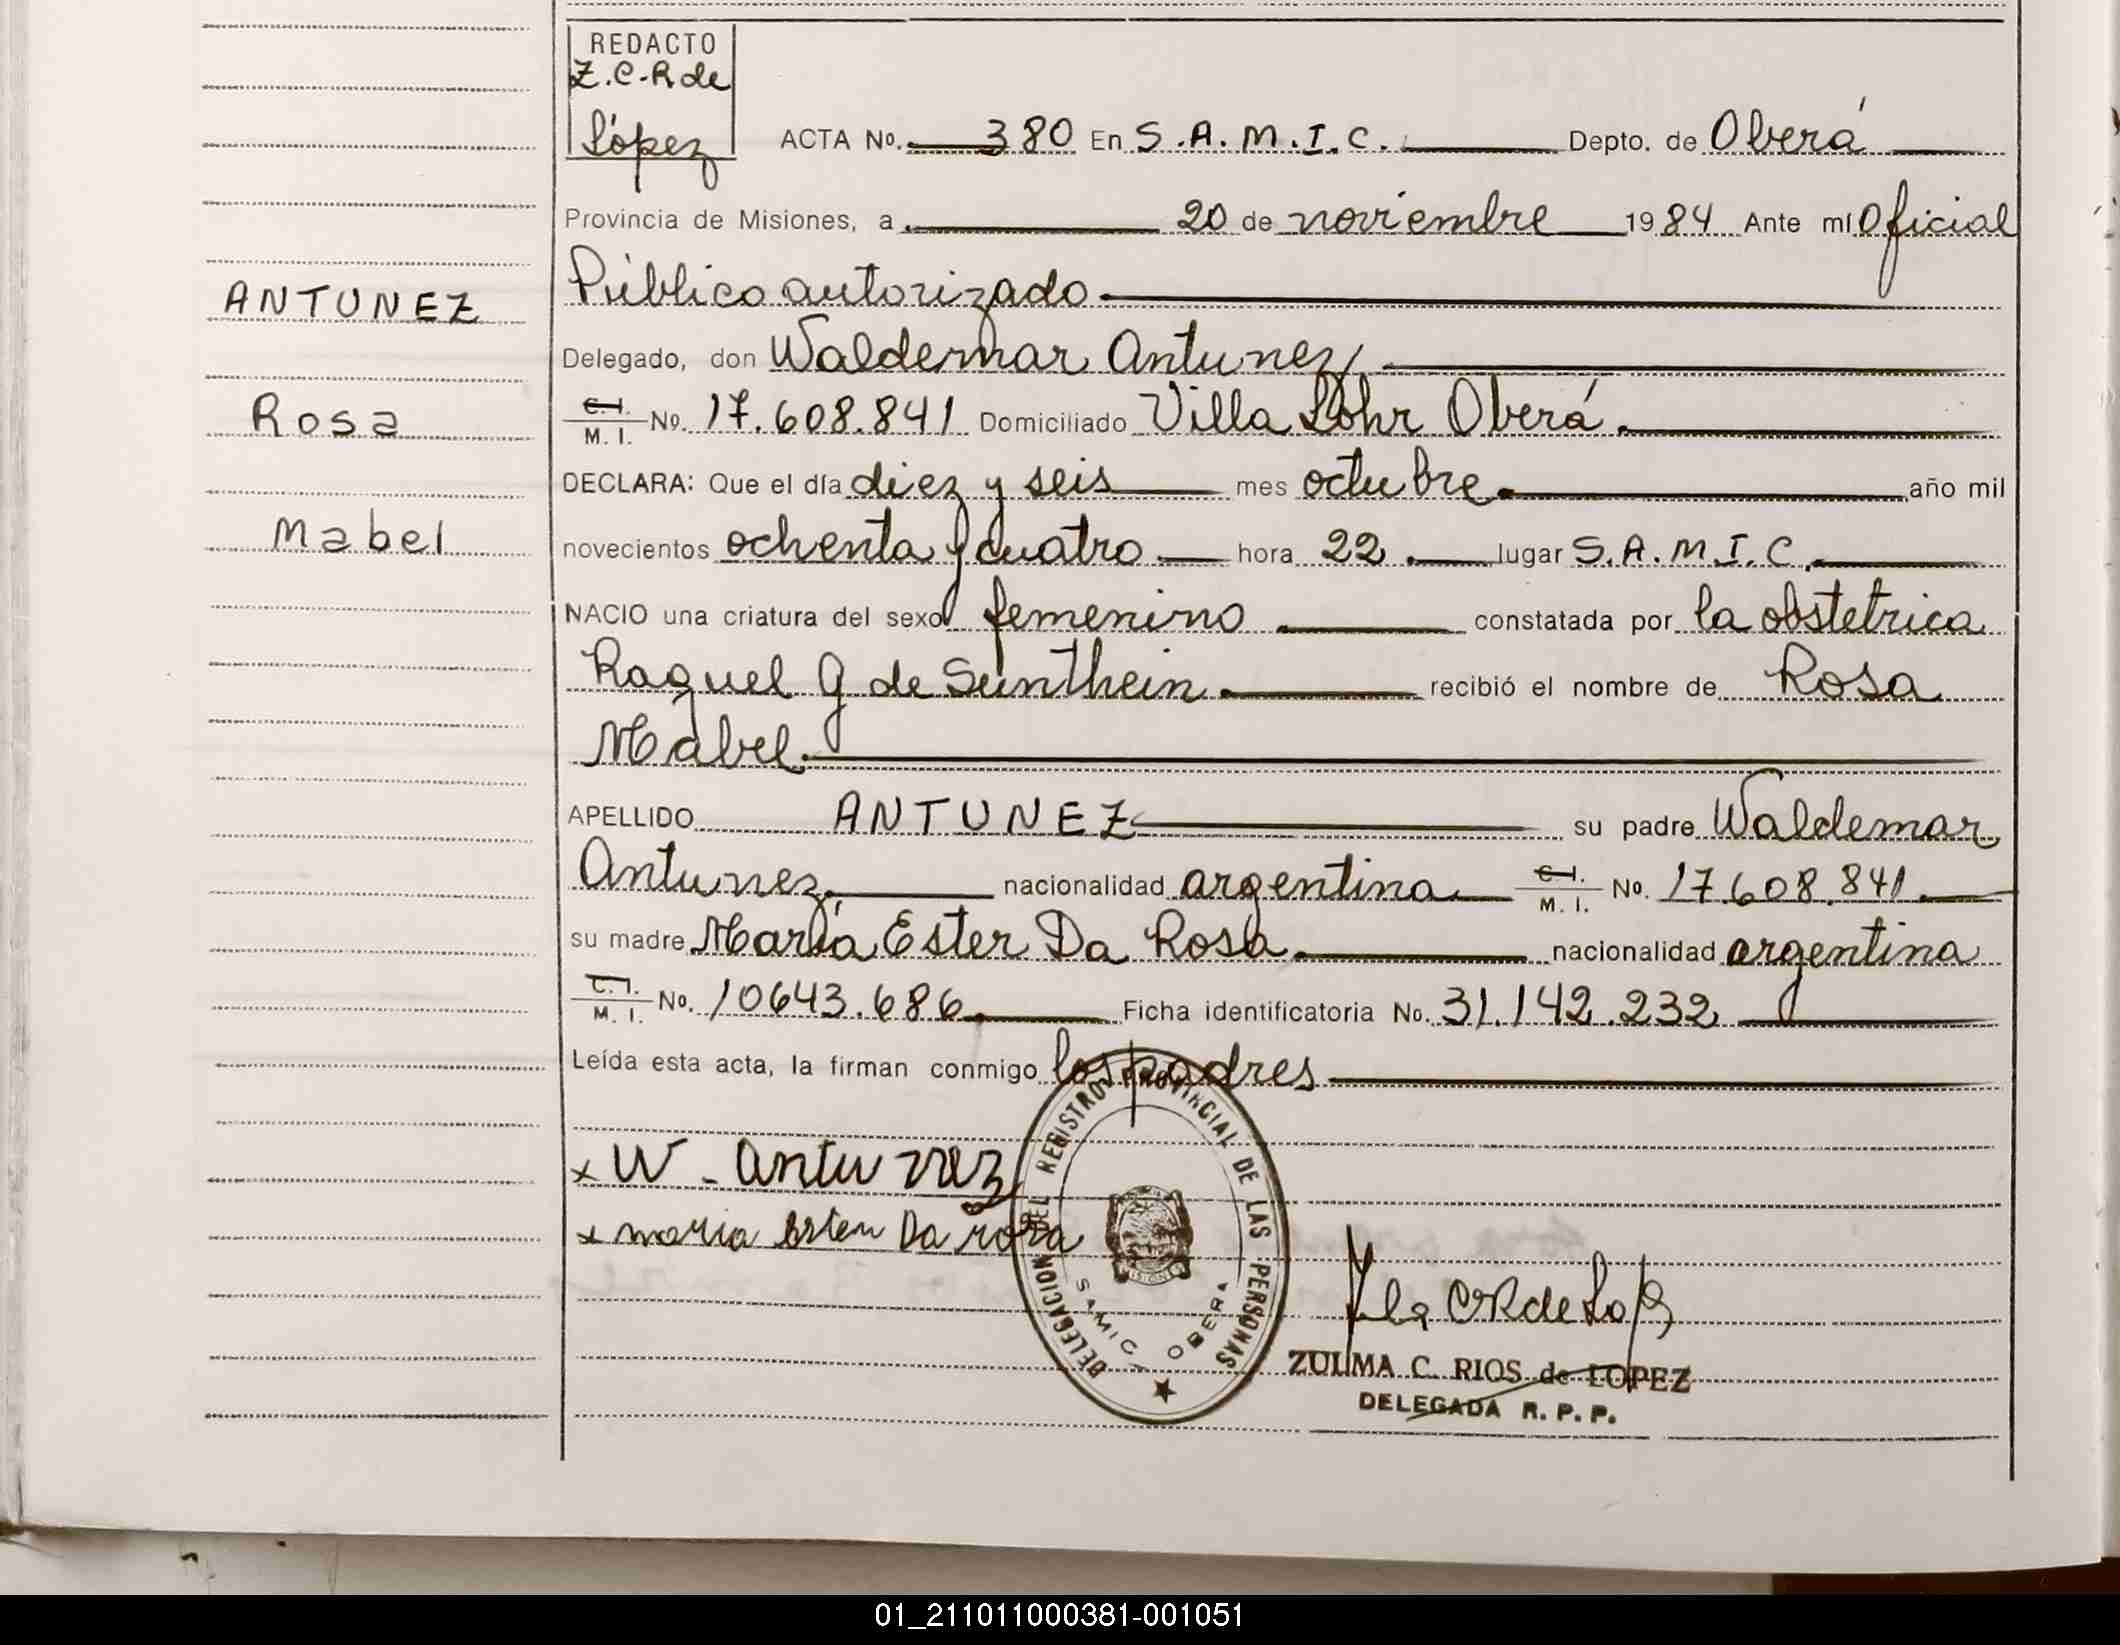 REDACTO
Z.C-R de
López
ACTA No. 380 En S.A.M.I.C. Depto. de Oberá
Provincia de Misiones, a 20 de noviembre 1984 Ante mí Oficial
Público autorizado
ANTUNEZ
Delegado, don Waldemar Antunez
Rosa
C.I. M.I. No. 17.608.841 Domiciliado Villa Löhr Oberá.
DECLARA: Que el día diez y seis mes octubre año mil
Mabel
novecientos ochenta y cuatro hora 22. lugar S.A.M.I.C.
NACIO una criatura del sexo femenino constatada por la obstetrica
Raquel G de Sunthein recibió el nombre de Rosa
Mabel.
APELLIDO ANTUNEZ su padre Waldemar
Antunez nacionalidad argentina C.I. M.I. No. 17.608.841.
su madre María Ester Da Rosa. nacionalidad argentina
C.I. M.I. No. 10643.686. Ficha identificatoria No. 31.142.232
Leída esta acta, la firman conmigo los padres
x W - Antunez
x maria Ester Da rosa
DELEGACION DEL REGISTRO PROVINCIAL DE LAS PERSONAS
MISIONES
SAMIC - OBERA
ZULMA C. RIOS de LOPEZ
DELEGADA R. P. P.
01_211011000381-001051